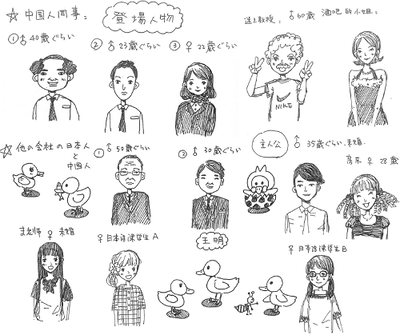 ☆ 中国人同事。
登場人物
① ♂ 40歳ぐらい
② ♂ 25歳ぐらい
③ ♀ 22歳ぐらい
♂ 60歳
酒吧的小姐。
NIKE
☆ 他の会社の日本人
と
中国人
① ♂ 50歳ぐらい
② ♂ 30歳ぐらい
主人公
♂ 35歳ぐらい、未婚.
♀ 28歳
♀ 未婚
♀ 日本語课学生A
王明
♀ 日本語课学生B